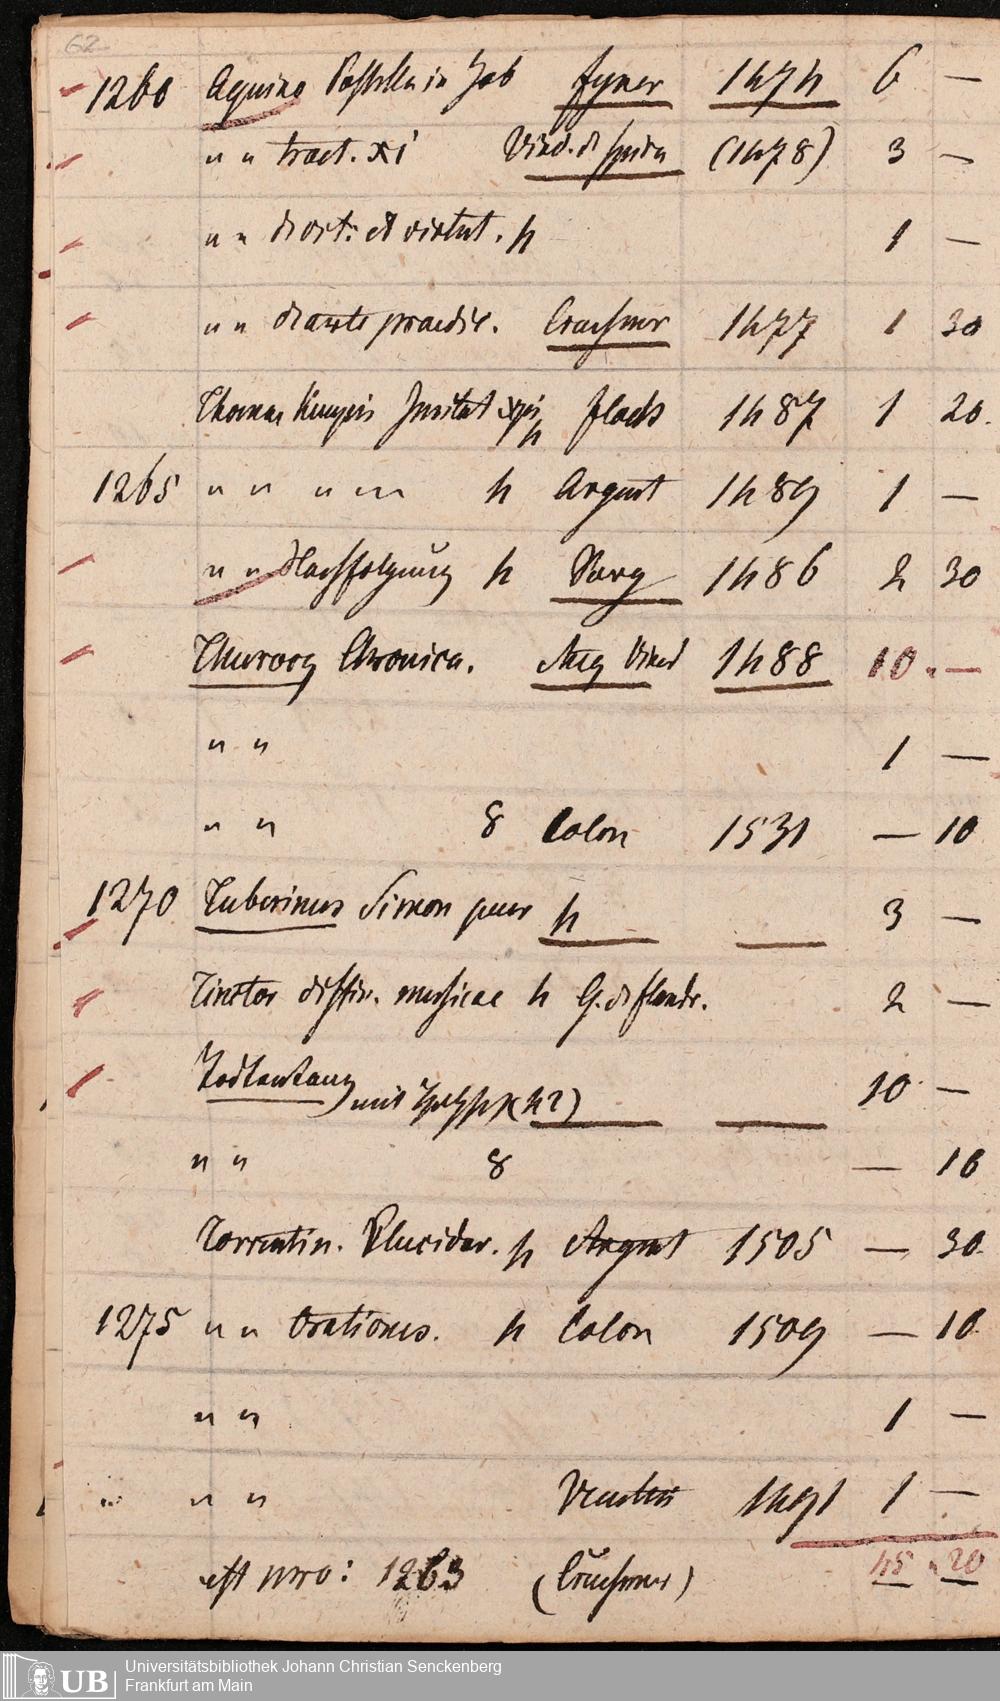 62
1260 Aquino Postilla in Job fyner 1474 6 —
" " tract. XI Vind. de spira (1478) 3 —
" " de vit: et virtut. 4 1 —
" " de arte praedic. Creussner 1477 1 30
Thomas Kempis Imitat xpi 4 flach 1487 1 20.
1265 " " " " " 4 Argent 1489 1 —
" " Nachfolgung 4 Sorg 1486 2 30
Thurocz Chronica. Aug Vind 1488 10. —
" " 1 —
" " 8 Colon 1531 — 10
1270 Tuberinus Simon puer 4 — 3 —
Tinctor diffin. musicae 4 G. de flandr. 2 —
Todtentanz mit (42) — 10 —
" " 8 — 10
Torrentin. Elucidar. 4 Argent 1505 — 30
1275 " " Orationes. 4 Colon 1509 — 10
" " 1 —
" " " Venetiis 1491 1 —
45 " 20
est nro: 1263 (Creussner)
Universitätsbibliothek Johann Christian Senckenberg
Frankfurt am Main
UB